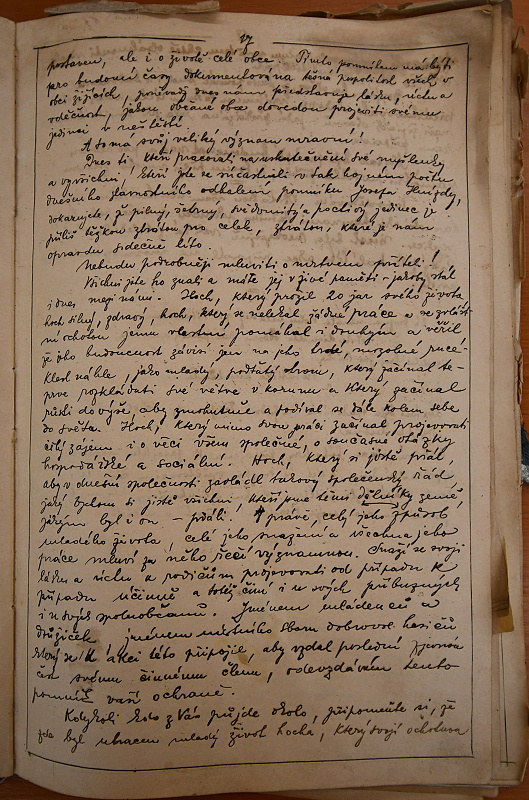 postaven, ale i o životě celé obce. Tímto pomníkem má býti
pro budoucí časy dokumentována těsná pospolitost všech v
obci žijících, poněvadž dnes nám představuje lásku, úctu a
vděčnost, jakou občané obce dovedou projeviti svému
jedinci v neštěstí
A to má svůj veliký význam mravní!
Dnes ti, kteří pracovali na uskutečnění své myšlenky
a vy všichni, kteří jste se súčastnili v tak hojném počtu
dnešního slavnostního odhalení pomníku Josefa
dokazujete, že pilný, svědomitý a poctivý jedinec je
příliš těžkou ztrátou pro celek, ztrátou, které je nám
opravdu srdečně líto.
Nebudu podrobněji mluviti o mrtvém příteli!
Všichni jste ho znali a máte jej v živé paměti – jakoby stál
i dnes mezi námi. Hoch, který prožil 20 jar svého života
hoch silný, zdravý, hoch, který se nelekal žádné práce a se zvlášt-
ní ochotou jemu vlastní pomáhal i druhým a věřil
že jeho budoucnost závisí jen na jeho tvrdé, mozolné ruce.
Klesl náhle, jako mladý, podťatý strom, který začínal te-
prve rozkládati své větve v korunu a který začínal
růsti do výše, aby zmohutněl a podíval se dále kolem sebe
do světa. Hoch, který mimo svou práci začínal projevovati
čilý zájem i o věci všem společné, o současné otázky
hospodářské a sociální. Hoch, který si jistě přál,
aby v dnešní společnosti zavládl takový společenský řád,
jaký bychom si jistě všichni, kteří jsme těmi dělníky země,
jakým byl i on – přáli. A právě, celý jeho způsob
mladého života, celé jeho snažení a všechna jeho
práce mluví za něho řečí významnou. Snaží se svoji
lásku a úctu k rodičům projevovati od případu k
případu účinně a totéž činí i u svých příbuzných
i u svých spoluobčanů. Jménem mládenců a
družiček, jménem místního sboru dobrovol. hasičů
který se k akci této připojil, aby vzdal poslední
čest svému činnému členu, odevzdávám tento
pomník vaší ochraně.
Kdykoli kdo z Vás půjde okolo, připomeňte si, že
zde byl uhracen mladý život hocha, který svojí ochotnou